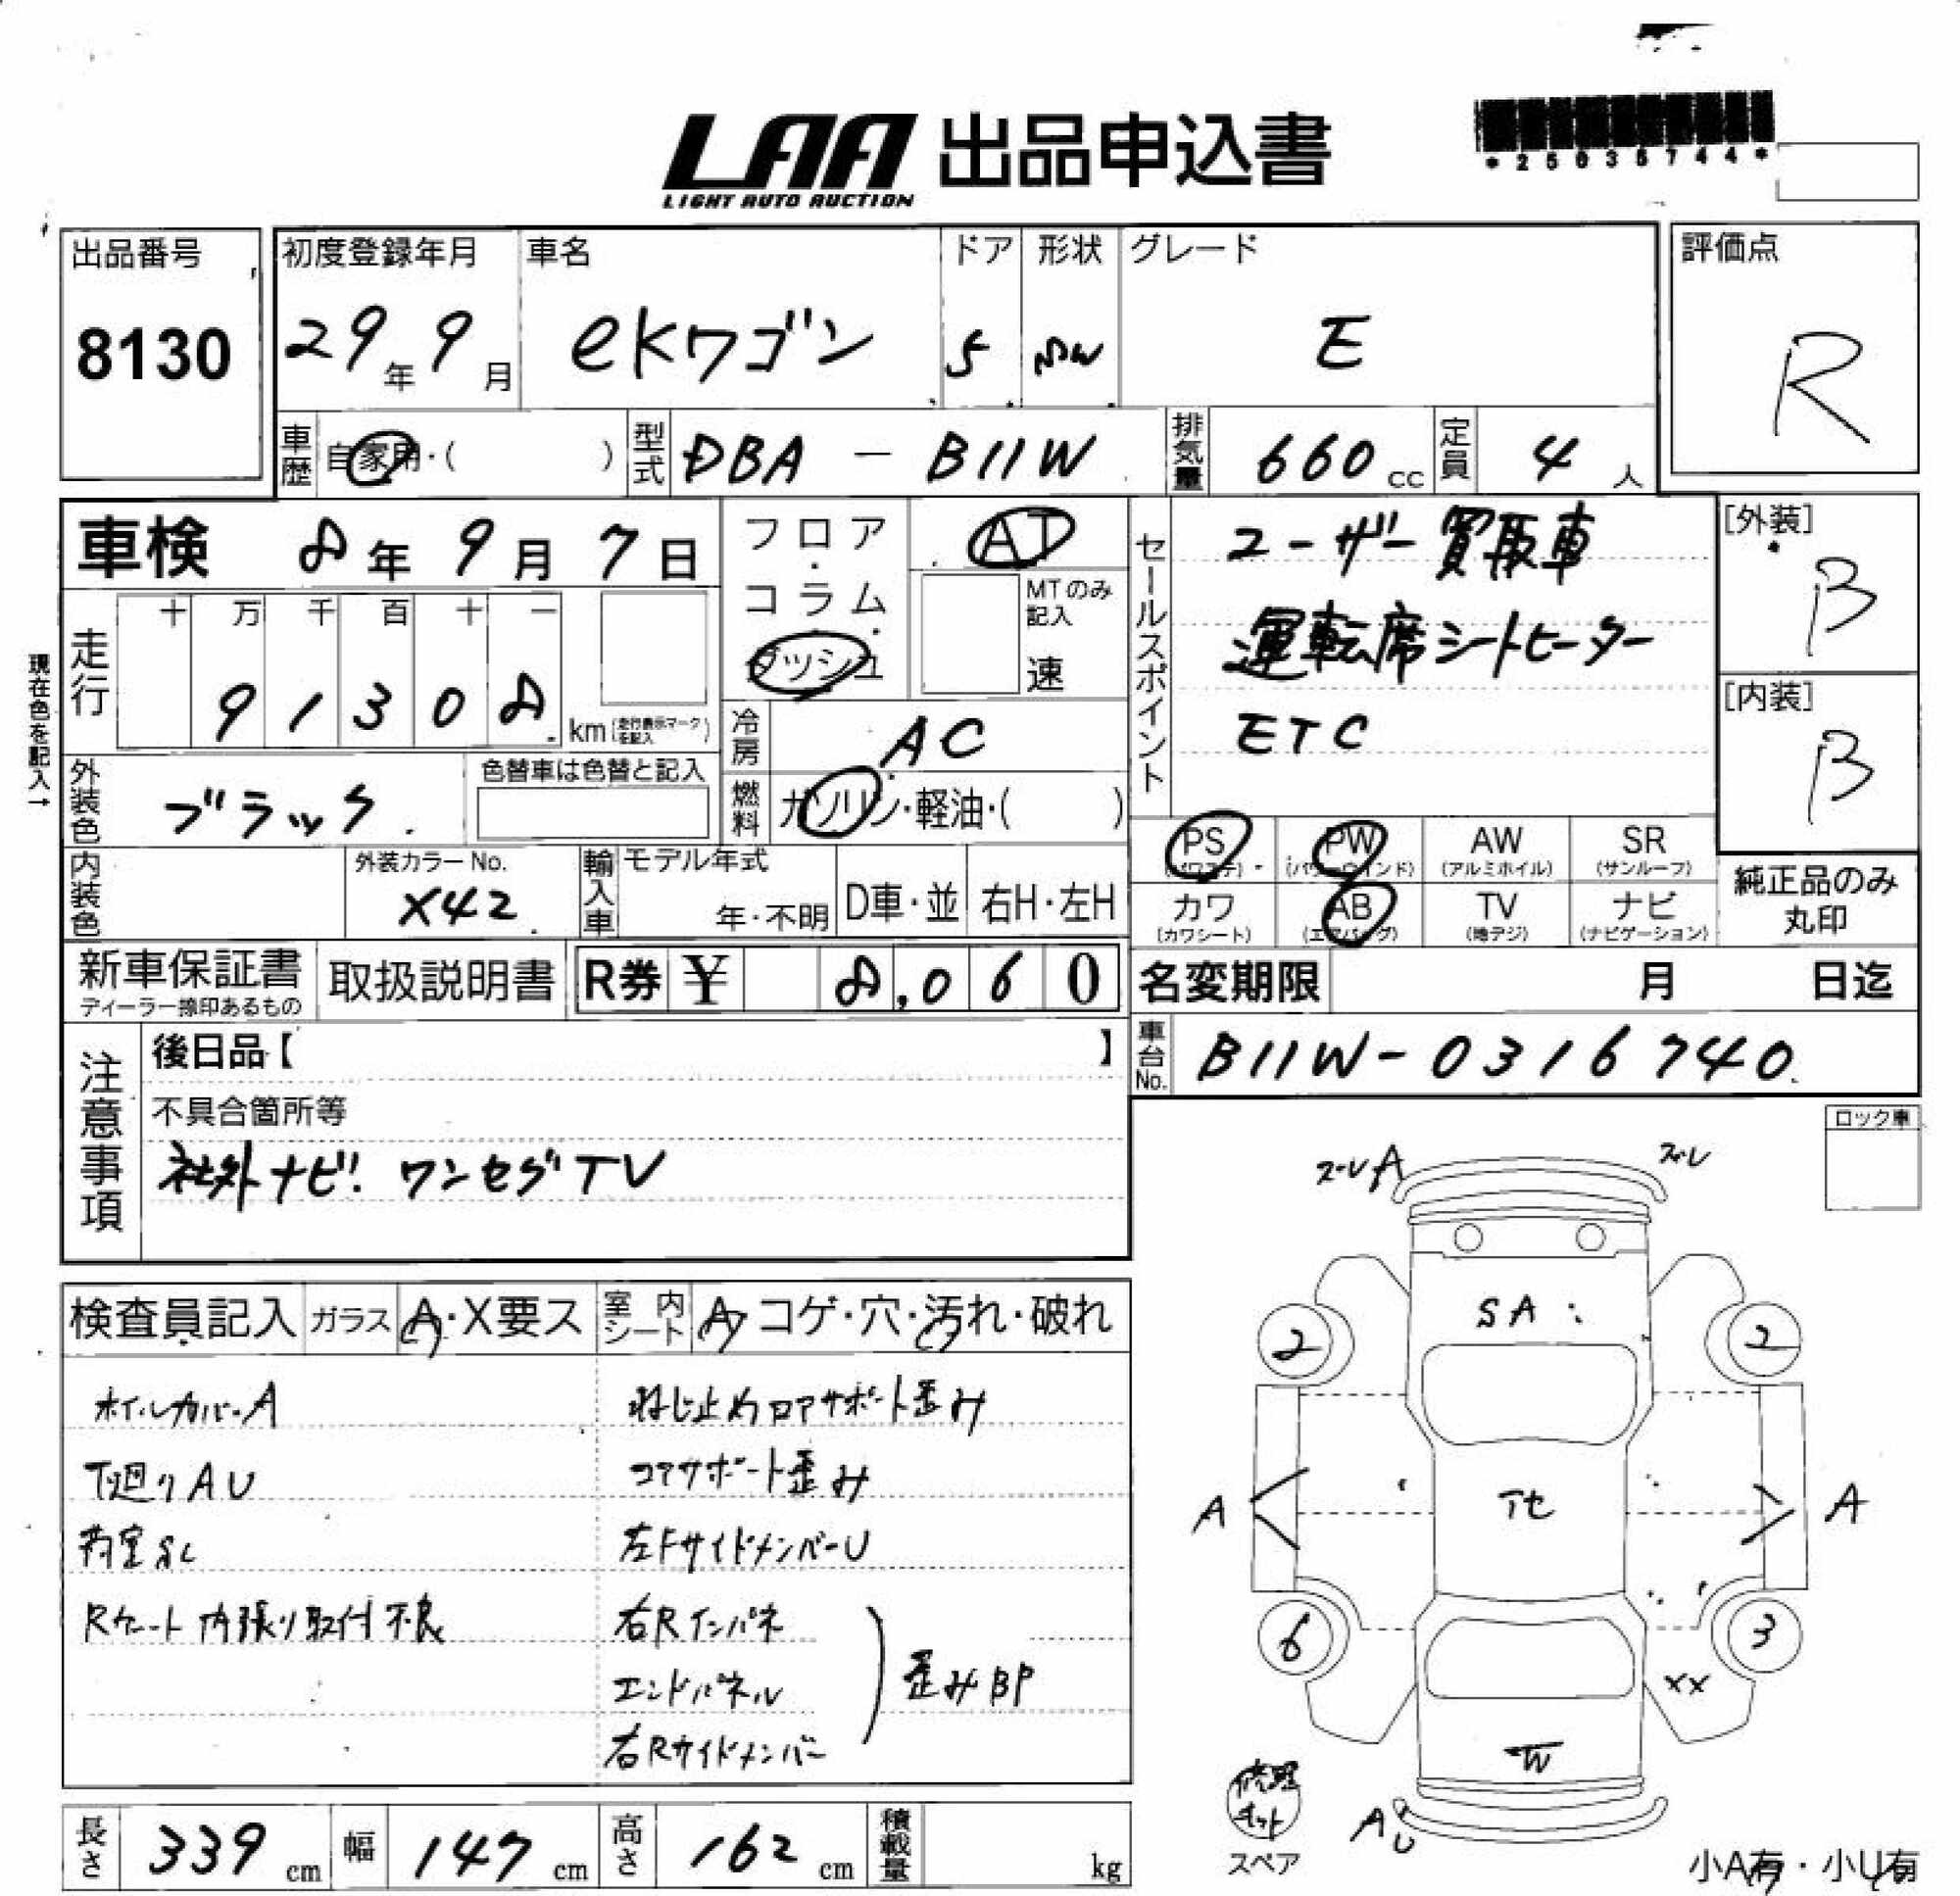 LAA 出品申込書
LIGHT AUTO AUCTION
*25035744*
出品番号
8130
初度登録年月
29年9月
車名
eKワゴン
ドア
5
形状
グレード
E
評価点
R
車歴 自家用・( )
型式 DBA - B11W
排気量 660cc
定員 4人
車検 8年9月7日
フロア・コラム・ダッシュ
AT
MTのみ記入
速
セールスポイント
ユーザー買取車
運転席シートヒーター
ETC
[外装]
B
[内装]
B
現在色を記入→
走行
十万千百十一
91308
km(走行表示マークを記入)
冷房 AC
燃料 ガソリン・軽油・( )
外装色 ブラック
色替車は色替と記入
内装色
外装カラーNo.
X42
輸入車
モデル年式
年・不明
D車・並
右H・左H
PS (パワステ)
PW (パワーウインド)
AW (アルミホイル)
SR (サンルーフ)
カワ (カワシート)
AB (エアバッグ)
TV (地デジ)
ナビ (ナビゲーション)
純正品のみ丸印
新車保証書
ディーラー捺印あるもの
取扱説明書
R券 ¥ 8,060
名変期限 月 日迄
車台No. B11W-0316740
注意事項
後日品【 】
不具合箇所等
社外ナビ! ワンセグTV
ロック車
検査員記入
ガラス A・X要ス
室内シート A・コゲ・穴・汚れ・破れ
ホイルカバーA
下廻りAU
荷室SC
Rゲート内張り取付不良
ねじ止めロアサポート歪み
コアサポート歪み
左FサイドメンバーU
右Rインパネ
エンドパネル
右Rサイドメンバー
歪みBP
ズレA
ズレ
SA
2
2
A
A
6
3
XX
W
AU
修理キット
スペア
小A有・小U有
長さ 339cm
幅 147cm
高さ 162cm
積載量 kg